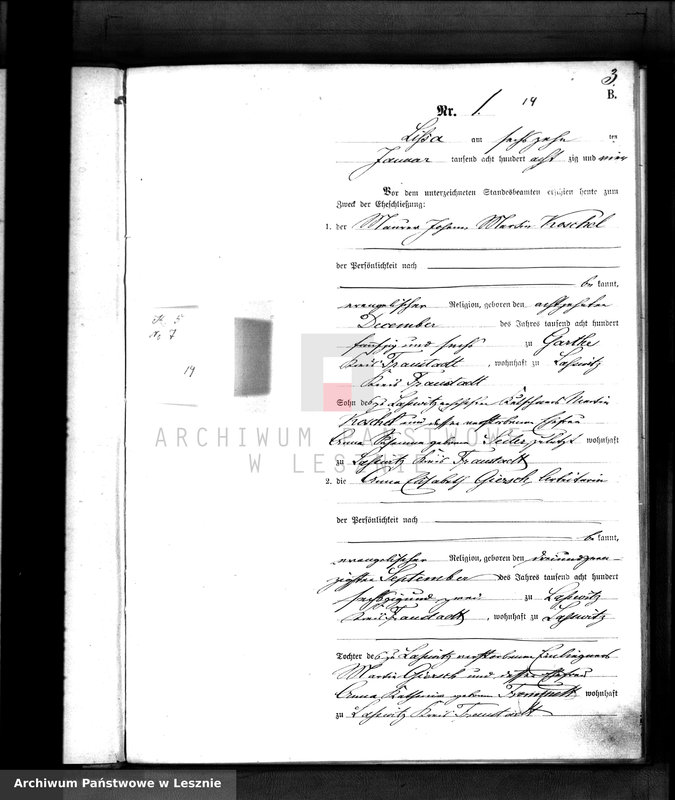 3.
B.
Nr. 1. 14
Lissa am sechszehn ten
Januar tausend acht hundert acht zig und vier
Vor dem unterzeichneten Standesbeamten erschien heute zum
Zweck der Eheschließung:
1. der Maurer Johann Martin Koschel
der Persönlichkeit nach
be kannt,
evangelischer Religion, geboren den achtzehnten
December des Jahres tausend acht hundert
fünfzig und sechs zu Garthe
Kreis Fraustadt, wohnhaft zu Laßwitz
Kreis Fraustadt
Sohn des zu Laßwitz Martin
Koschel und dessen verstorbenen Ehefrau
Anna geborene zuletzt wohnhaft
zu Laßwitz Kreis Fraustadt
2. die Anna Elisabeth Giersch, Arbeiterin
der Persönlichkeit nach
be kannt,
evangelischer Religion, geboren den dreiundzwan-
zigsten September des Jahres tausend acht hundert
sechszig und zwei zu Laßwitz
Kreis Fraustadt, wohnhaft zu Laßwitz
Tochter des zu Laßwitz verstorbenen Einliegers
Martin Giersch und dessen Ehefrau
Anna Katharina geborene wohnhaft
zu Laßwitz Kreis Fraustadt
5
No 7
14
ARCHIWUM PAŃSTWOWE
W LESZNIE
Archiwum Państwowe w Lesznie